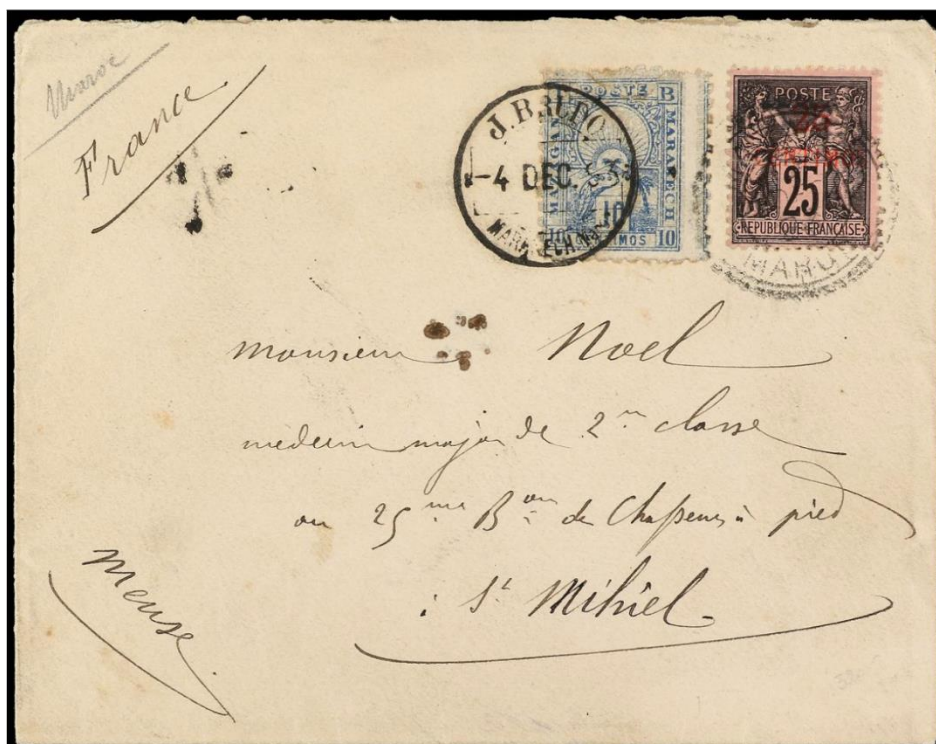 Maroc
France
J. BRUDO
-4 DEC. 93
MARAKECH
POSTE B
MAZAGAN
MARAECH
10
10 10
POSTE
25
REPUBLIQUE FRANCAISE
MAROC
Monsieur Noel
medecin major de 2me classe
au 25me Bon de Chasseurs à pied
à St Mihiel
Meuse